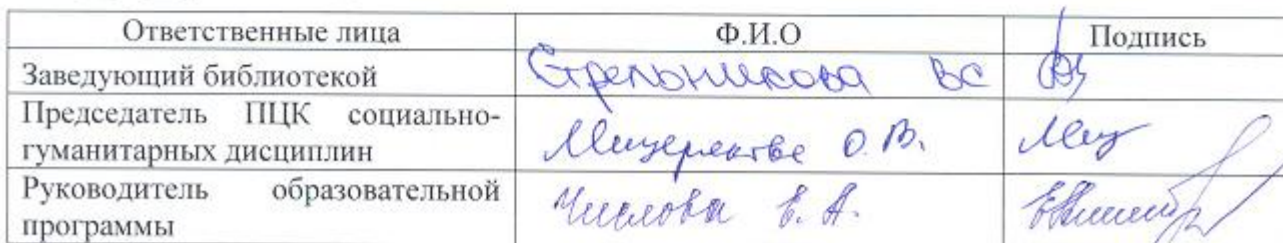 Ответственные лица Ф.И.О Подпись
Заведующий библиотекой Стрельникова ВС
Председатель ПЦК социально-
гуманитарных дисциплин О.В.
Руководитель образовательной
программы Числова Е.А.